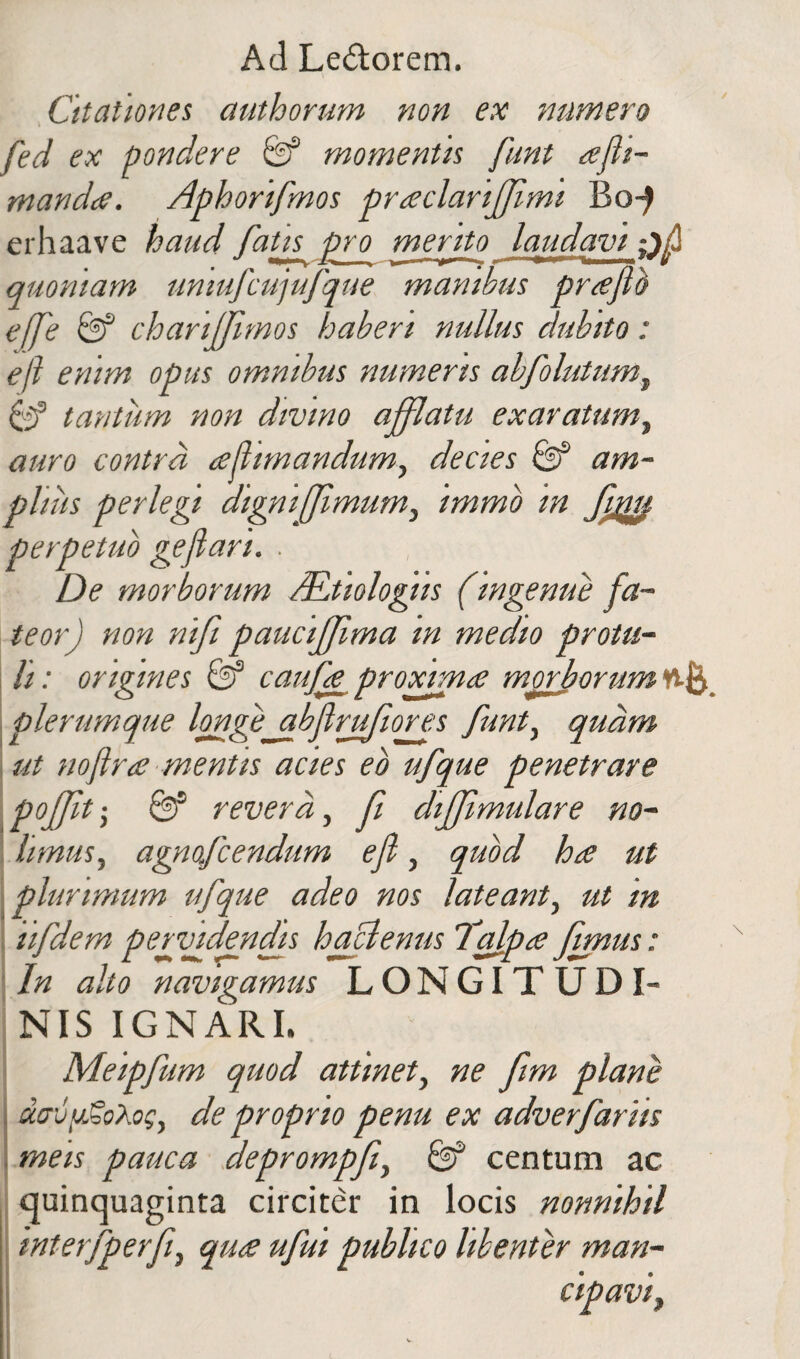 Ad Lectorem.
Citationes authorum non ex numero
ſed ex pondere & momentis ſunt æſti-
mandæ. Aphoriſmos præclariſſimi Bo-
erhaave haud ſatis pro merito laudavi
quoniam uniuſcujuſque manibus præſtò
eſſe & chariſſimos haberi nullus dubito :
eſt enim opus omnibus numeris abſolutum,
& tantùm non divino afflatu exaratum,
auro contrà æſtimandum, decies & am-
pliùs perlegi digniſſimum, immò in ſinu
perpetuò geſtari.
De morborum Ætiologiis (ingenuè fa-
teor) non niſi pauciſſima in medio protu-
li : origines & cauſæ proximæ morborum
plerumque longè abſtruſiores ſunt, quàm
ut noſtræ mentis acies eò uſque penetrare
poſſit ; & reverà, ſi diſſimulare no-
limus, agnoſcendum eſt, quòd hæ ut
plurimum uſque adeo nos lateant, ut in
iiſdem pervidendis hactenus Talpæ ſimus :
In alto navigamus LONGITUDI-
NIS IGNARI.
Meipſum quod attinet, ne ſim planè
ἀσύμϐολος, de proprio penu ex adverſariis
meis pauca deprompſi, & centum ac
quinquaginta circitèr in locis nonnihil
interſperſi, quæ uſui publico libentèr man-
cipavi,